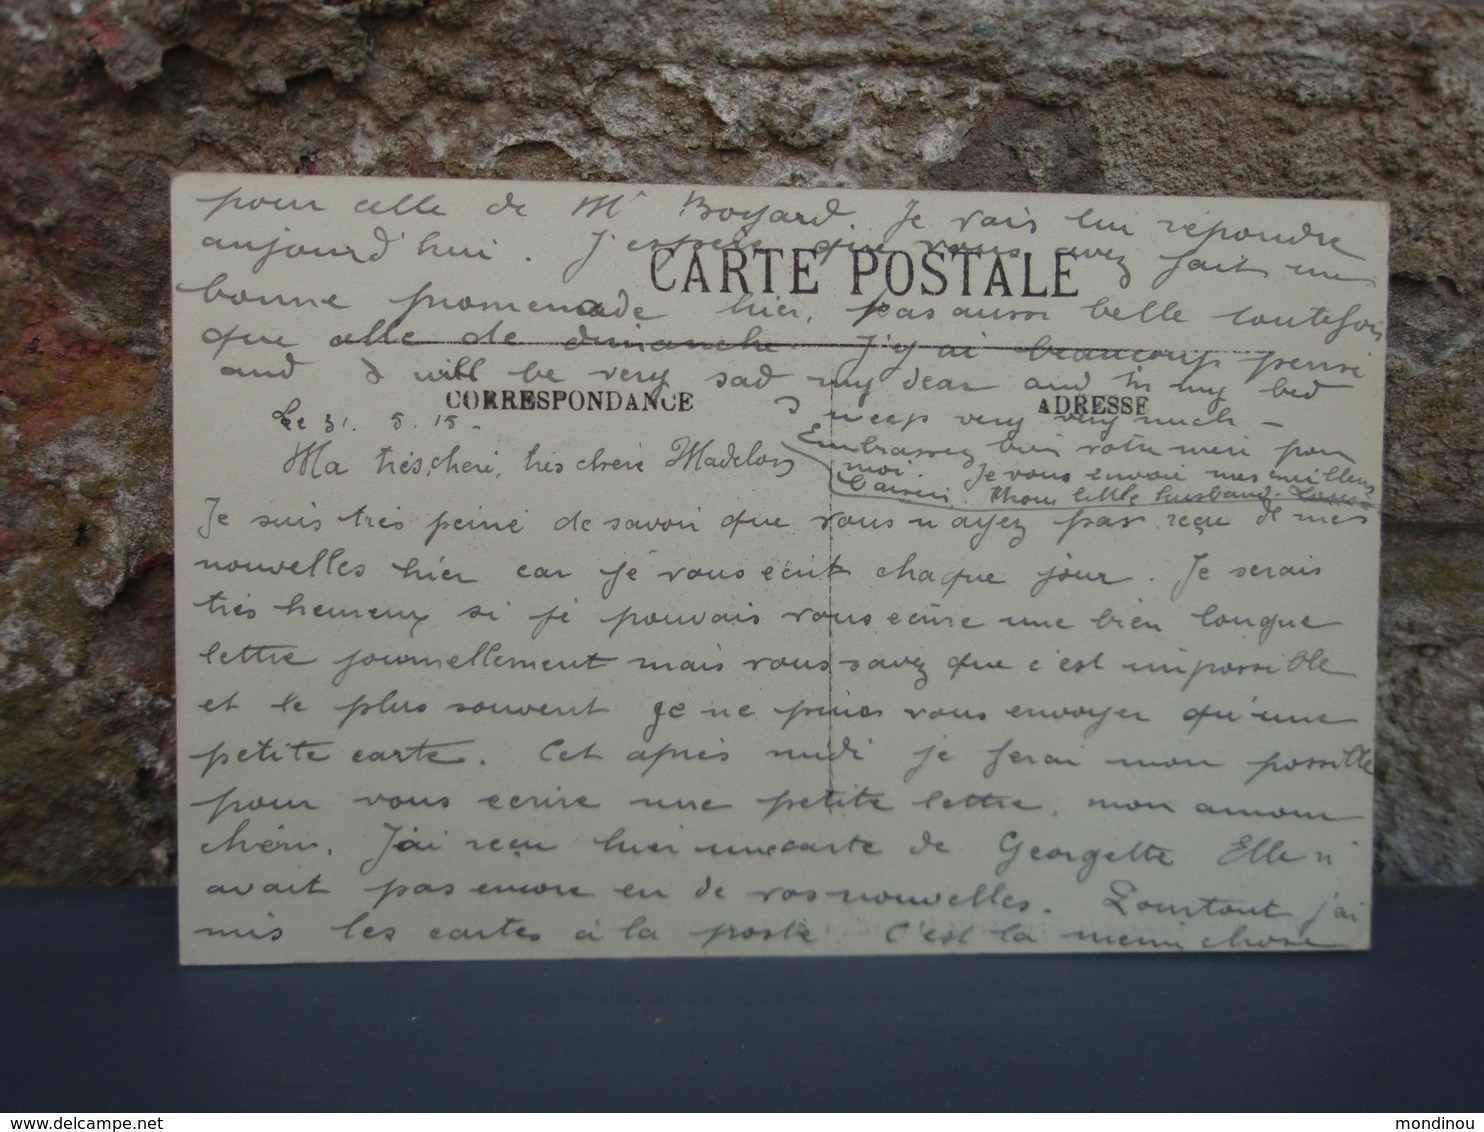 pour celle de Mr Boyard. Je vais lui répondre
aujourd'hui. J'espère que vous avez fait une
CARTE POSTALE
bonne promenade hier, pas aussi belle toutefois
que celle de dimanche. J'y ai beaucoup pensé
and I will be very sad my dear and in my bed
CORRESPONDANCE
ADRESSE
I weep very very much -
Le 31. 5. 15.
Embrassez bien votre mère pour
Ma très chérie, très chère Madelon
moi. Je vous envoie mes meilleurs
baisers. Your little husband.
Je suis très peiné de savoir que vous n'ayez pas reçu de mes
nouvelles hier car je vous écrit chaque jour. Je serais
très heureux si je pouvais vous écrire une bien longue
lettre journellement mais vous savez que c'est impossible
et le plus souvent je ne puis vous envoyer qu'une
petite carte. Cet après midi je ferai mon possible
pour vous écrire une petite lettre, mon amour
chéri. J'ai reçu hier une carte de Georgette Elle n'
avait pas encore eu de vos nouvelles. Pourtant j'ai
mis les cartes à la poste. C'est la même chose
delcampe.net
mondinou